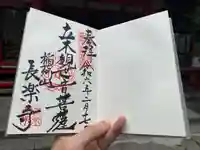 奉拝 令和六年二月七日
立木観世音菩薩
稲荷山
長楽寺